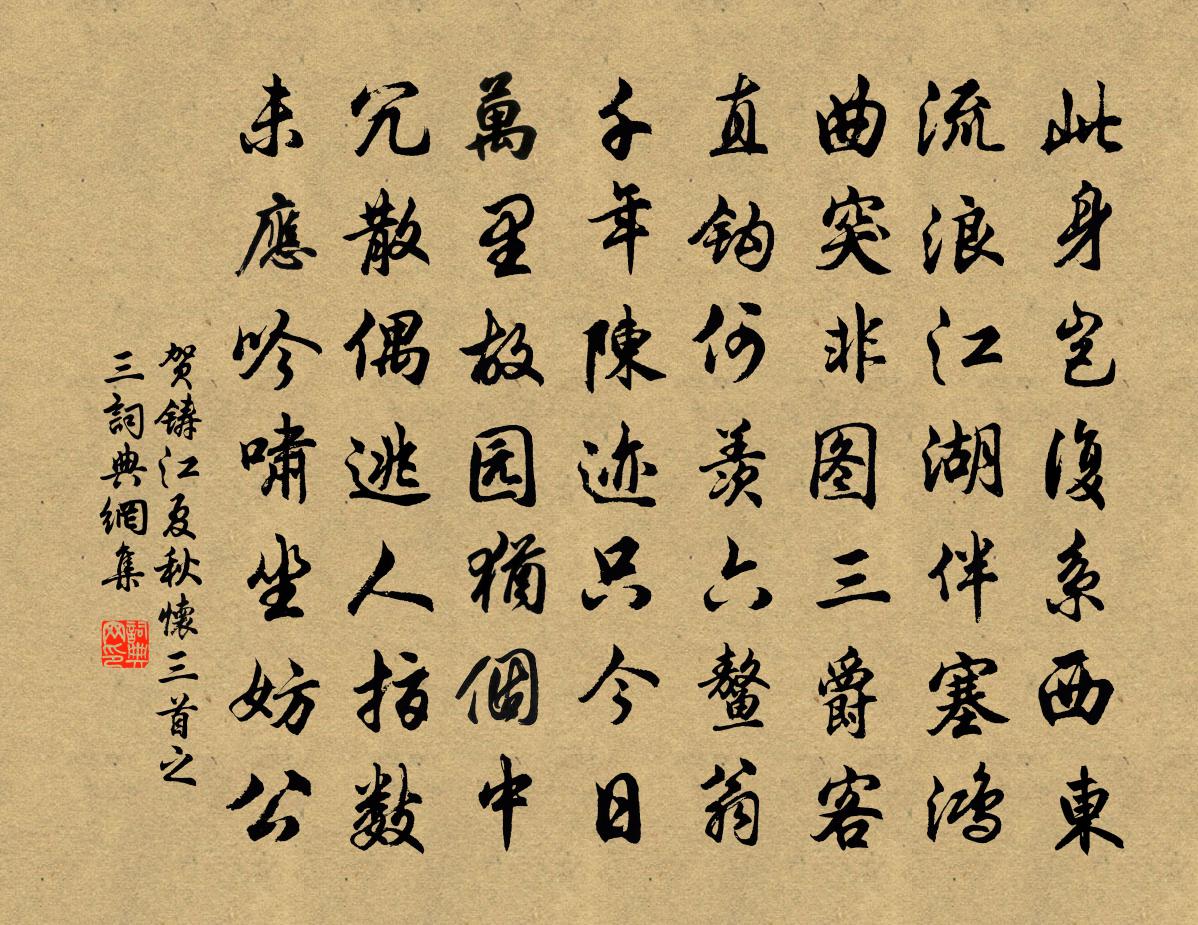 此身岂復系西東
流浪江湖伴塞鸿
曲突非图三爵客
直钩何羡六鳌翁
千年陳迹只今日
萬里故园猶個中
冗散偶逃人指數
未應吟嘯坐妨公
贺铸江夏秋懷三首之
三詞典網集
詞典
网印